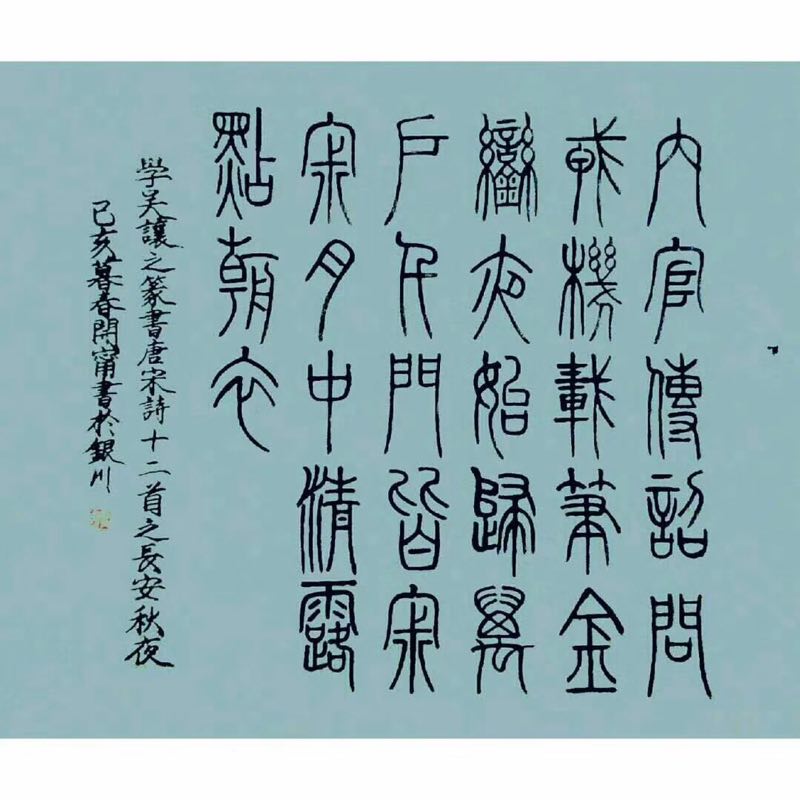 內官傳詔問
戎機載筆金
鑾夜始歸萬
戶千門皆寂
寂月中清露
點朝衣
學吳讓之篆書唐宋詩十二首之長安秋夜
己亥暮春開甯書於銀川